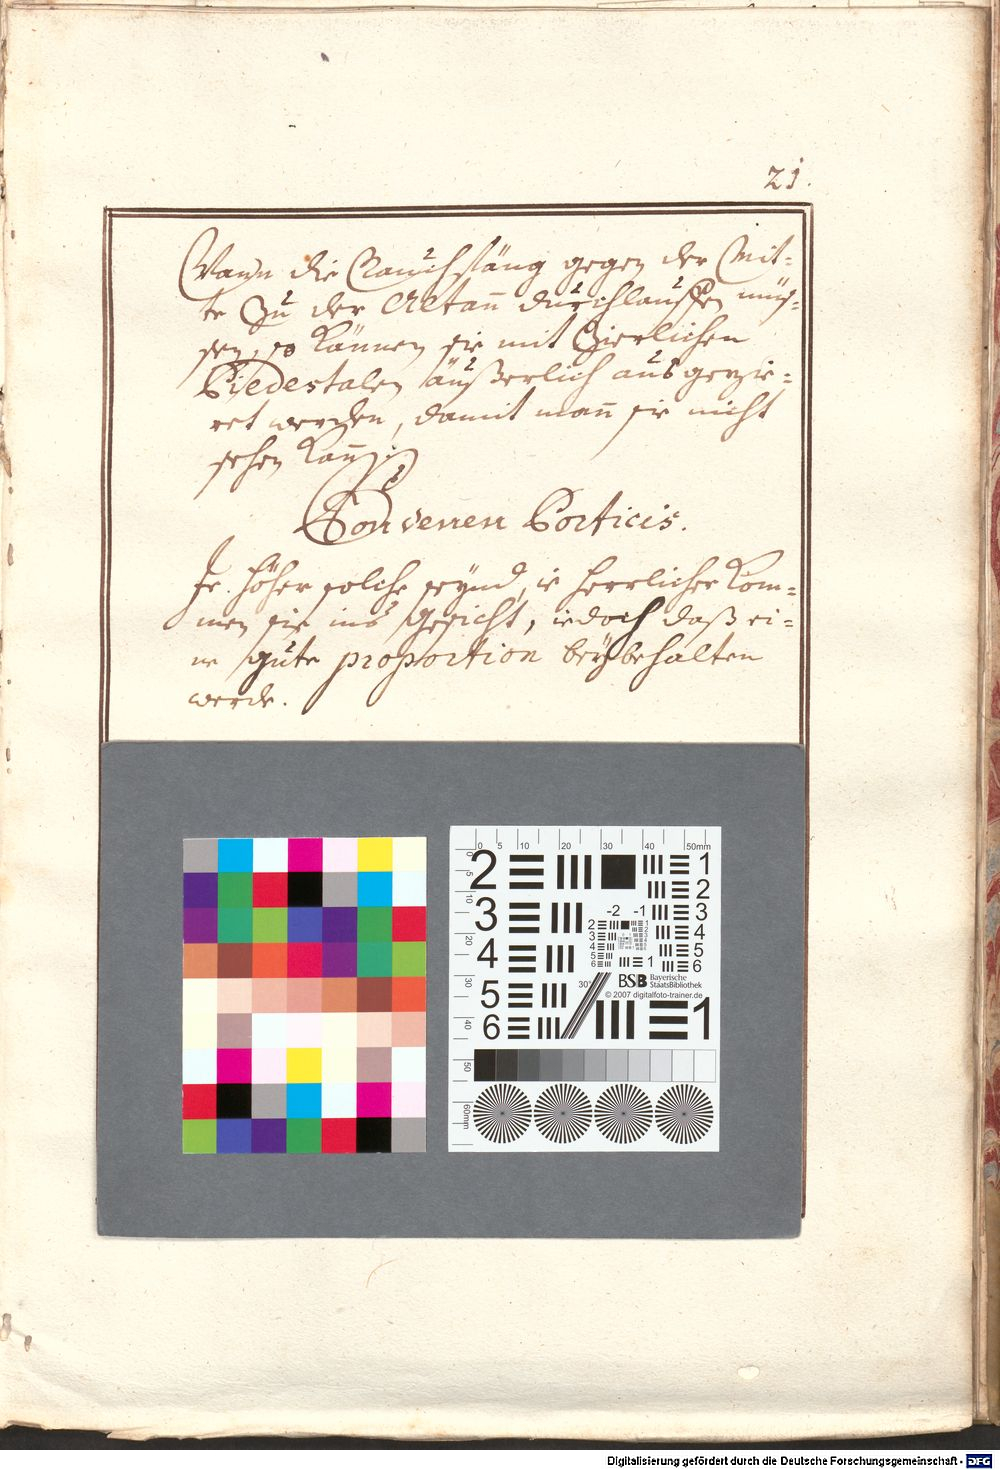 21.
Wann die Rauchfäng gegen der Mit-
te Zu der Altan̅ durchlauffen müs-
sen, so Können sie mit Zierlichen
Piedestalen äußerlich ausgezie-
ret werden, damit man̅ sie nicht
sehen Kan̅.
Porticis.
Je höher solche seynd, ie herrlicher Kom-
men sie ins gesicht, iedoch daß ei-
ne gute proportion beÿbehalten
werde.
0 5 10 20 30 40 50mm
0 5 10 20 30 40 50 60mm
2 3 4 5 6
1 2 3 4 5 6
-2 -1
2 3 4 5 6
1
30°
BSB Bayerische
StaatsBibliothek
© 2007 digitalfoto-trainer.de
1
Digitalisierung gefördert durch die Deutsche Forschungsgemeinschaft - DFG